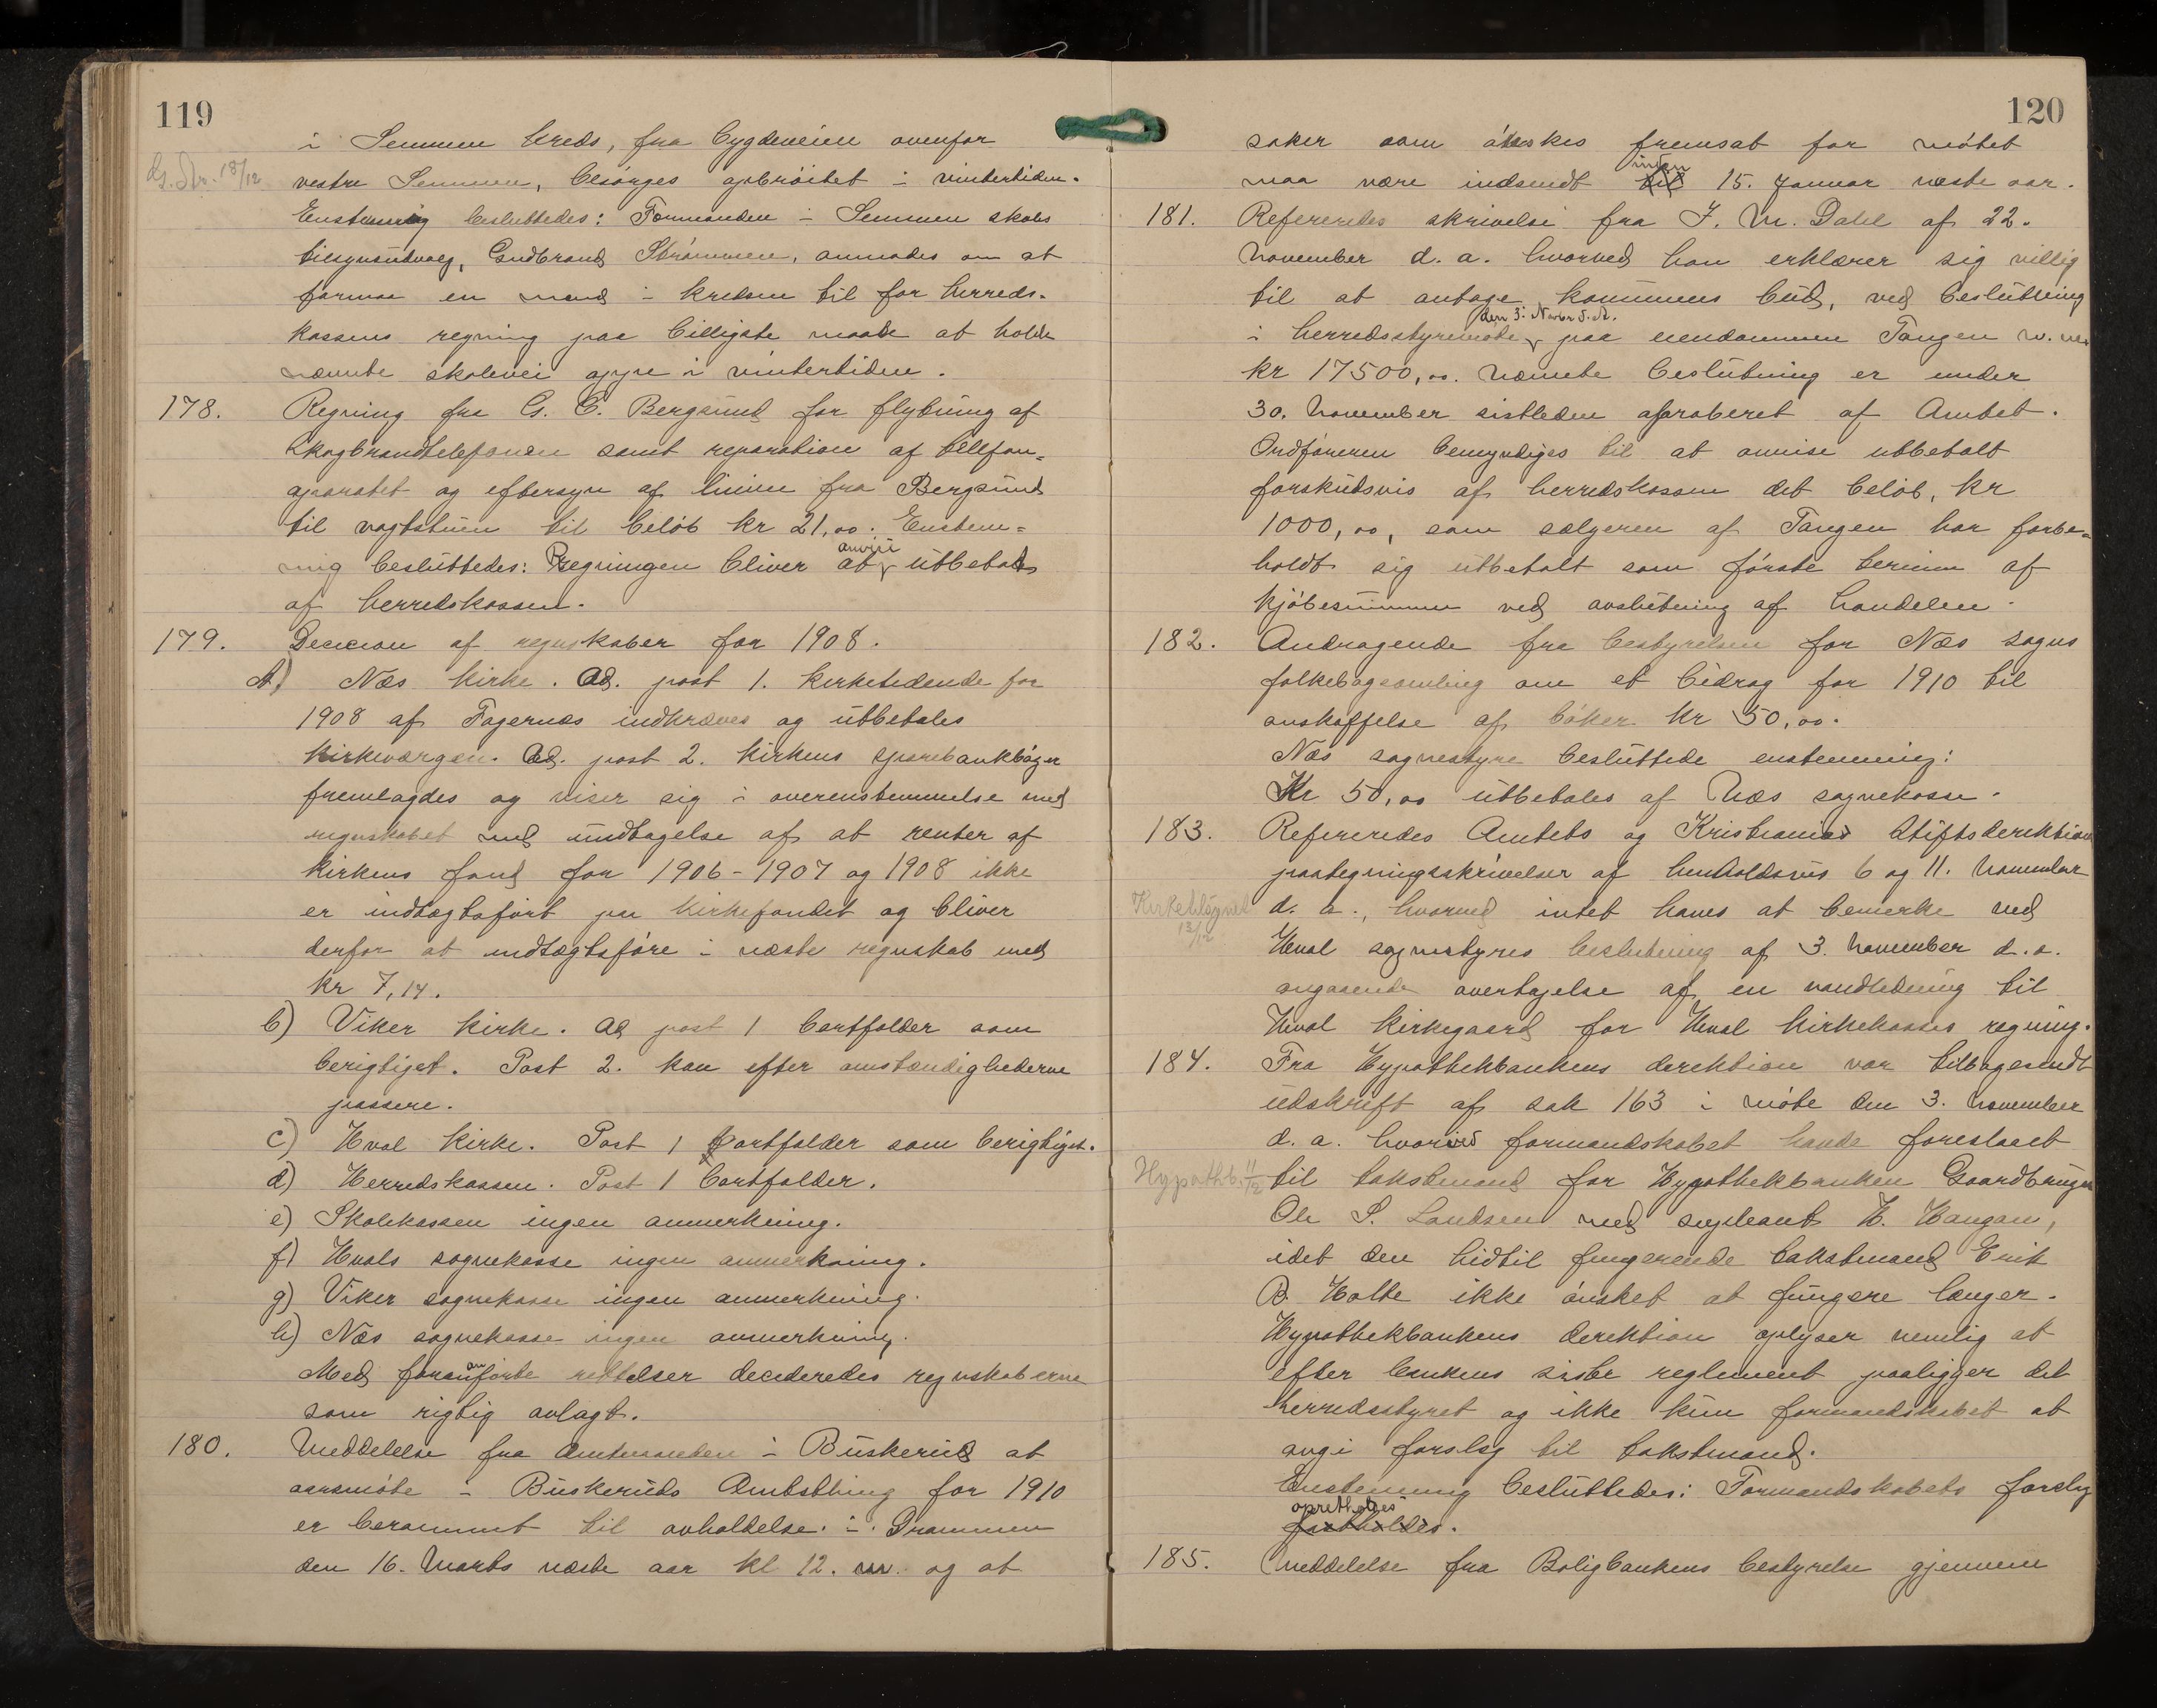 119
i Semmen kreds, fra bygdeveien ovenfor
G. Str. 18/12
vestre Semmen, besørges opbrøitet i vintertiden.
Enstemmig besluttedes: Formanden i Semmen skoles
tilsynsudvalg, Gudbrand Strømmen, anmodes om at
formaa en mand i kredsen til for herreds-
kassens regning paa billigste maate at holde
nævnte skolevei appe i vintertiden.
178. Regning fra G. C. Bergsund for flytning af
skogbrandtelefonen samt reparation af tellfon-
aparatet og eftersyn af linien fra Bergsund
til vagtstuen til beløb kr 21,00. Enstem=
mig besluttedes: Regningen bliver at anvise utbetalt
af herredskassen.
179. Decicion af regnskaber for 1908.
A) Næs kirke. Ad. post 1. Kirketidende for
1908 af Fagernæs indkræves og utbetales
kirkeværgen. Ad. post 2. Kirkens sparebankbøger
fremlagdes og viser sig i overenstemmelse med
regnskabet med undtagelse af at renter af
kirkens fond for 1906-1907 og 1908 ikke
er indtægtsført paa kirkefondet og bliver
derfor at indtægtsføre i næste regnskab med
kr 7,14.
b) Viker kirke. Ad post 1 bortfalder som
berigtiget. Post 2. kan efter omstændighederne
passere.
c) Hval kirke. Post 1 bortfalder som berigtiget.
d) Herredskassen. Post 1 bortfalder.
e) Skolekassen ingen anmerkning.
f) Hvals sognekasse ingen anmerkning.
g) Viker sognekasse ingen anmerkning.
h) Næs sognekasse ingen anmerkning.
Med foranførte rettelser decideredes regnskaberne
som rigtig avlagt.
180. Meddelelse fra Amtmanden i Buskerud at
aarsmøte i Buskeruds Amtsthing for 1910
er berammet til avholdelse i Drammen
den 16. Marts næste aar kl 12. m. og at
120
saker som ønskes fremsat for møtet
maa være indsendt til inden 15. Januar næste aar.
181. Refereredes skrivelse fra J. M. Dahl af 22.
November d. a. hvorved han erklærer sig villig
til at antage kommunens bud, ved beslutning
i herredsstyremøte den 3. Novbr d.a. paa eiendommen Tangen m. m.
kr 17500,00. Nævnte beslutning er under
30. November sistleden aproberet af Amtet.
Ordføreren bemyndiges til at anvise utbetalt
forskudsvis af herredskassen det beløb, kr
1000,00, som sælgeren af Tangen har forbe=
holdt sig utbetalt som første termin af
kjøbesummen ved avslutning af handelen.
182. Andragende fra bestyrelsen for Næs sogns
folkebogsamling om et bidrag for 1910 til
anskaffelse af bøker kr 50,00.
Næs sognestyre besluttede enstemmig:
Kr 50,00 utbetales af Næs sognekasse.
183. Refereredes Amtets og Kristianias Stiftsdirektions
paategningsskrivelser af henholdsvis 6 og 11. November
Kirketilsynet 13/12
d. a., hvorved intet haves at bemerke ved
Hval sognestyres beslutning af 3. November d.a.
angaaende overtagelse af en vandledning til
Hval kirkegaard for Hval kirkekasses regning.
184. Fra Hypothekbankens derektion var tilbagesendt
udskrift af sak 163 i møte den 3. November
d. a. hvorved formandskabet havde foreslaaet
Hypothb. 11/12
til takstmand for Hypothekbanken Gaardbruger
Ole S. Landsem med supleant H. Haugan,
idet den hidtil fungerende takstmand Erik
B. Holte ikke ønsket at fungere længer.
Hypothekbankens derektion oplyser nemlig at
efter bankens siste reglement paaligger det
herredsstyret og ikke kun formandskabet at
avgi forslag til takstmand.
Enstemmig besluttedes: Formandskabets forslag
opretholdes
fastholdes.
185. Meddelelse fra Boligbankens bestyrelse gjennem